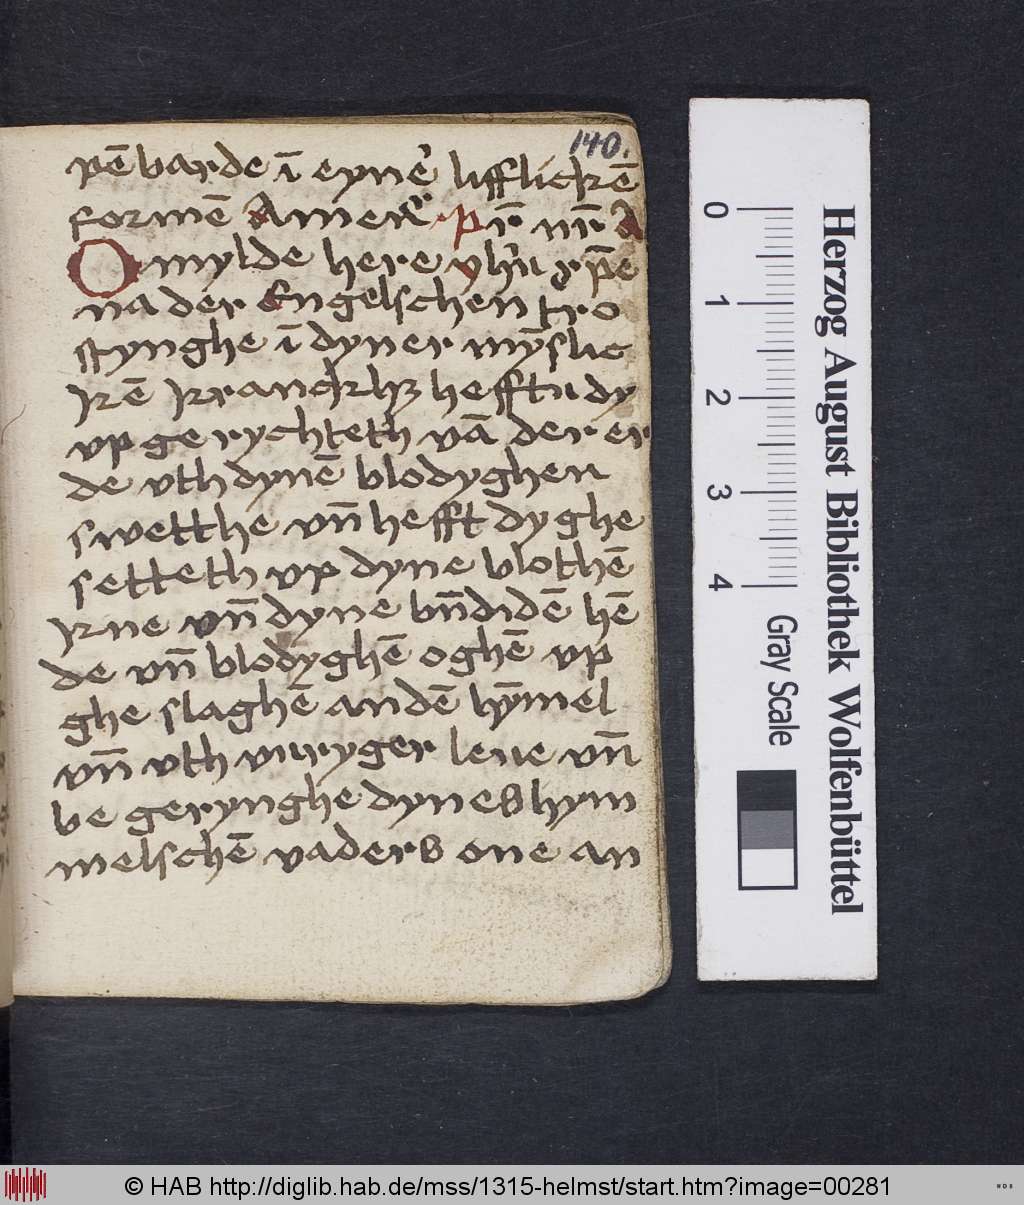 140.
pē barde ī eyner lifflickē
formē Amen Pr̄ nr̄ A
O mylde here yhū xp̄e
na der Engelschen tro
stynghe ī dyner mȳslic
kē kranckhz hefftu dy
vp ge rychteth vā der er
de vth dynē blodyghen
swetthe vn̄ hefft dy ghe
setteth vp dyne blothē
kne vn̄ dyne bn̄didē hē
de vn̄ blodyghē oghē vp
ghe slaghē andē hȳmel
vn̄ vth vuryger leue vn̄
be gerynghe dynes hym
melschē vaders one an
Herzog August Bibliothek Wolfenbüttel
0 1 2 3 4 Gray Scale
© HAB http://diglib.hab.de/mss/1315-helmst/start.htm?image=00281